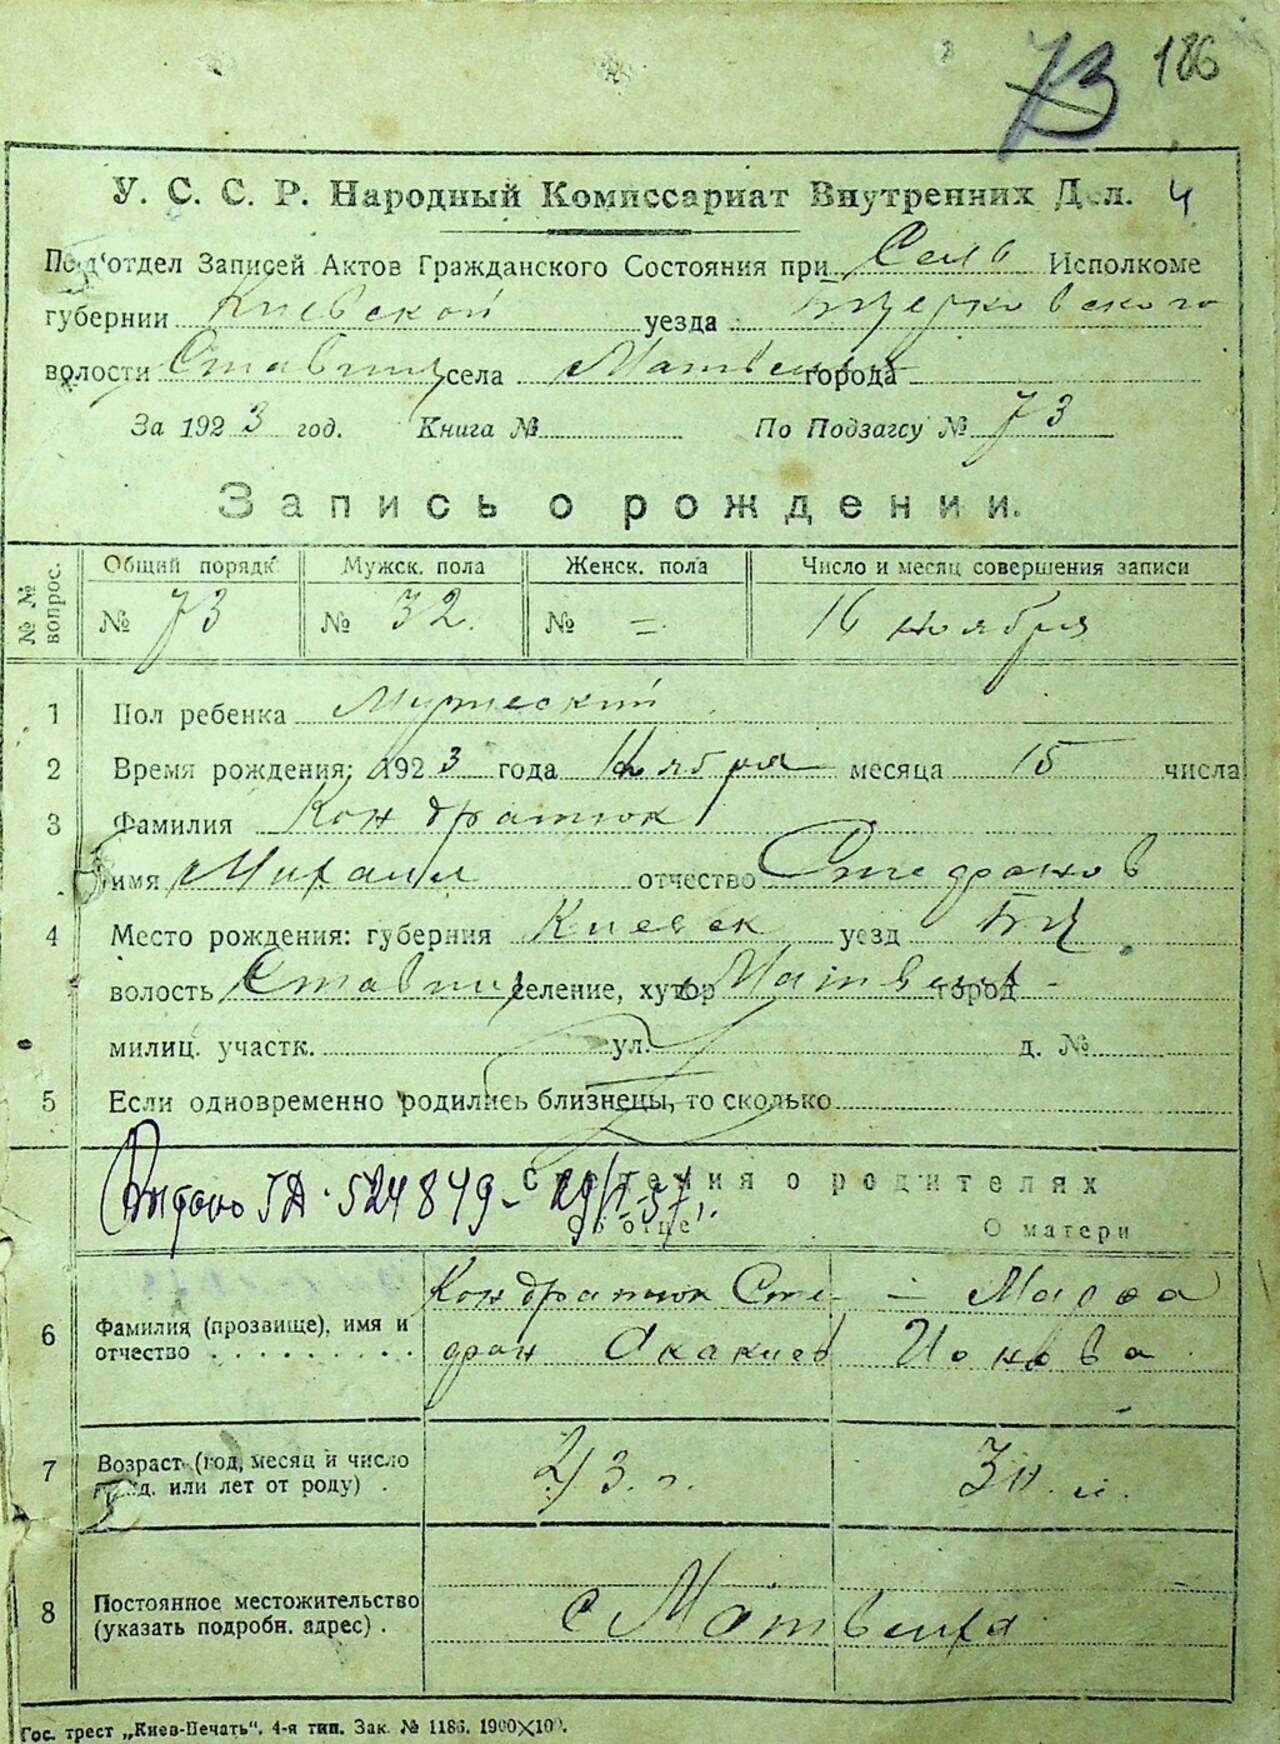 73 186
У. С. С. Р. Народный Комиссариат Внутренних Дел. 4
Под'отдел Записей Актов Гражданского Состояния при Сель Исполкоме
губернии Киевской уезда БЦерковского
волости Ставищ села Матвеиха города
За 1923 год. Книга № По Подзагсу № 73
Запись о рождении.
№ № вопрос. Общий порядк. Мужск. пола Женск. пола Число и месяц совершения записи
№ 73 № 32. № = 16 ноября
1 Пол ребенка Мужеский
2 Время рождения: 1923 года Ноября месяца 15 числа
3 Фамилия Кондратюк
имя Михаил отчество Стефанов
4 Место рождения: губерния Киевск уезд БЦ
волость Ставищ селение, хутор Матвеиха город
милиц. участк. ул. д. №
5 Если одновременно родились близнецы, то сколько
Сведения о родителях
Выдано 524849 -
Об отце О матери
6 Фамилия (прозвище), имя и отчество Кондратюк Сте- — Марфа
фан Акакиев Ионова
7 Возраст (год, месяц и число
рожд. или лет от роду) 43. г. 
8 Постоянное местожительство
(указать подробн. адрес) с Матвеиха
Гос. трест „Киев-Печать“. 4-я тип. Зак. № 1186. 1900×100.